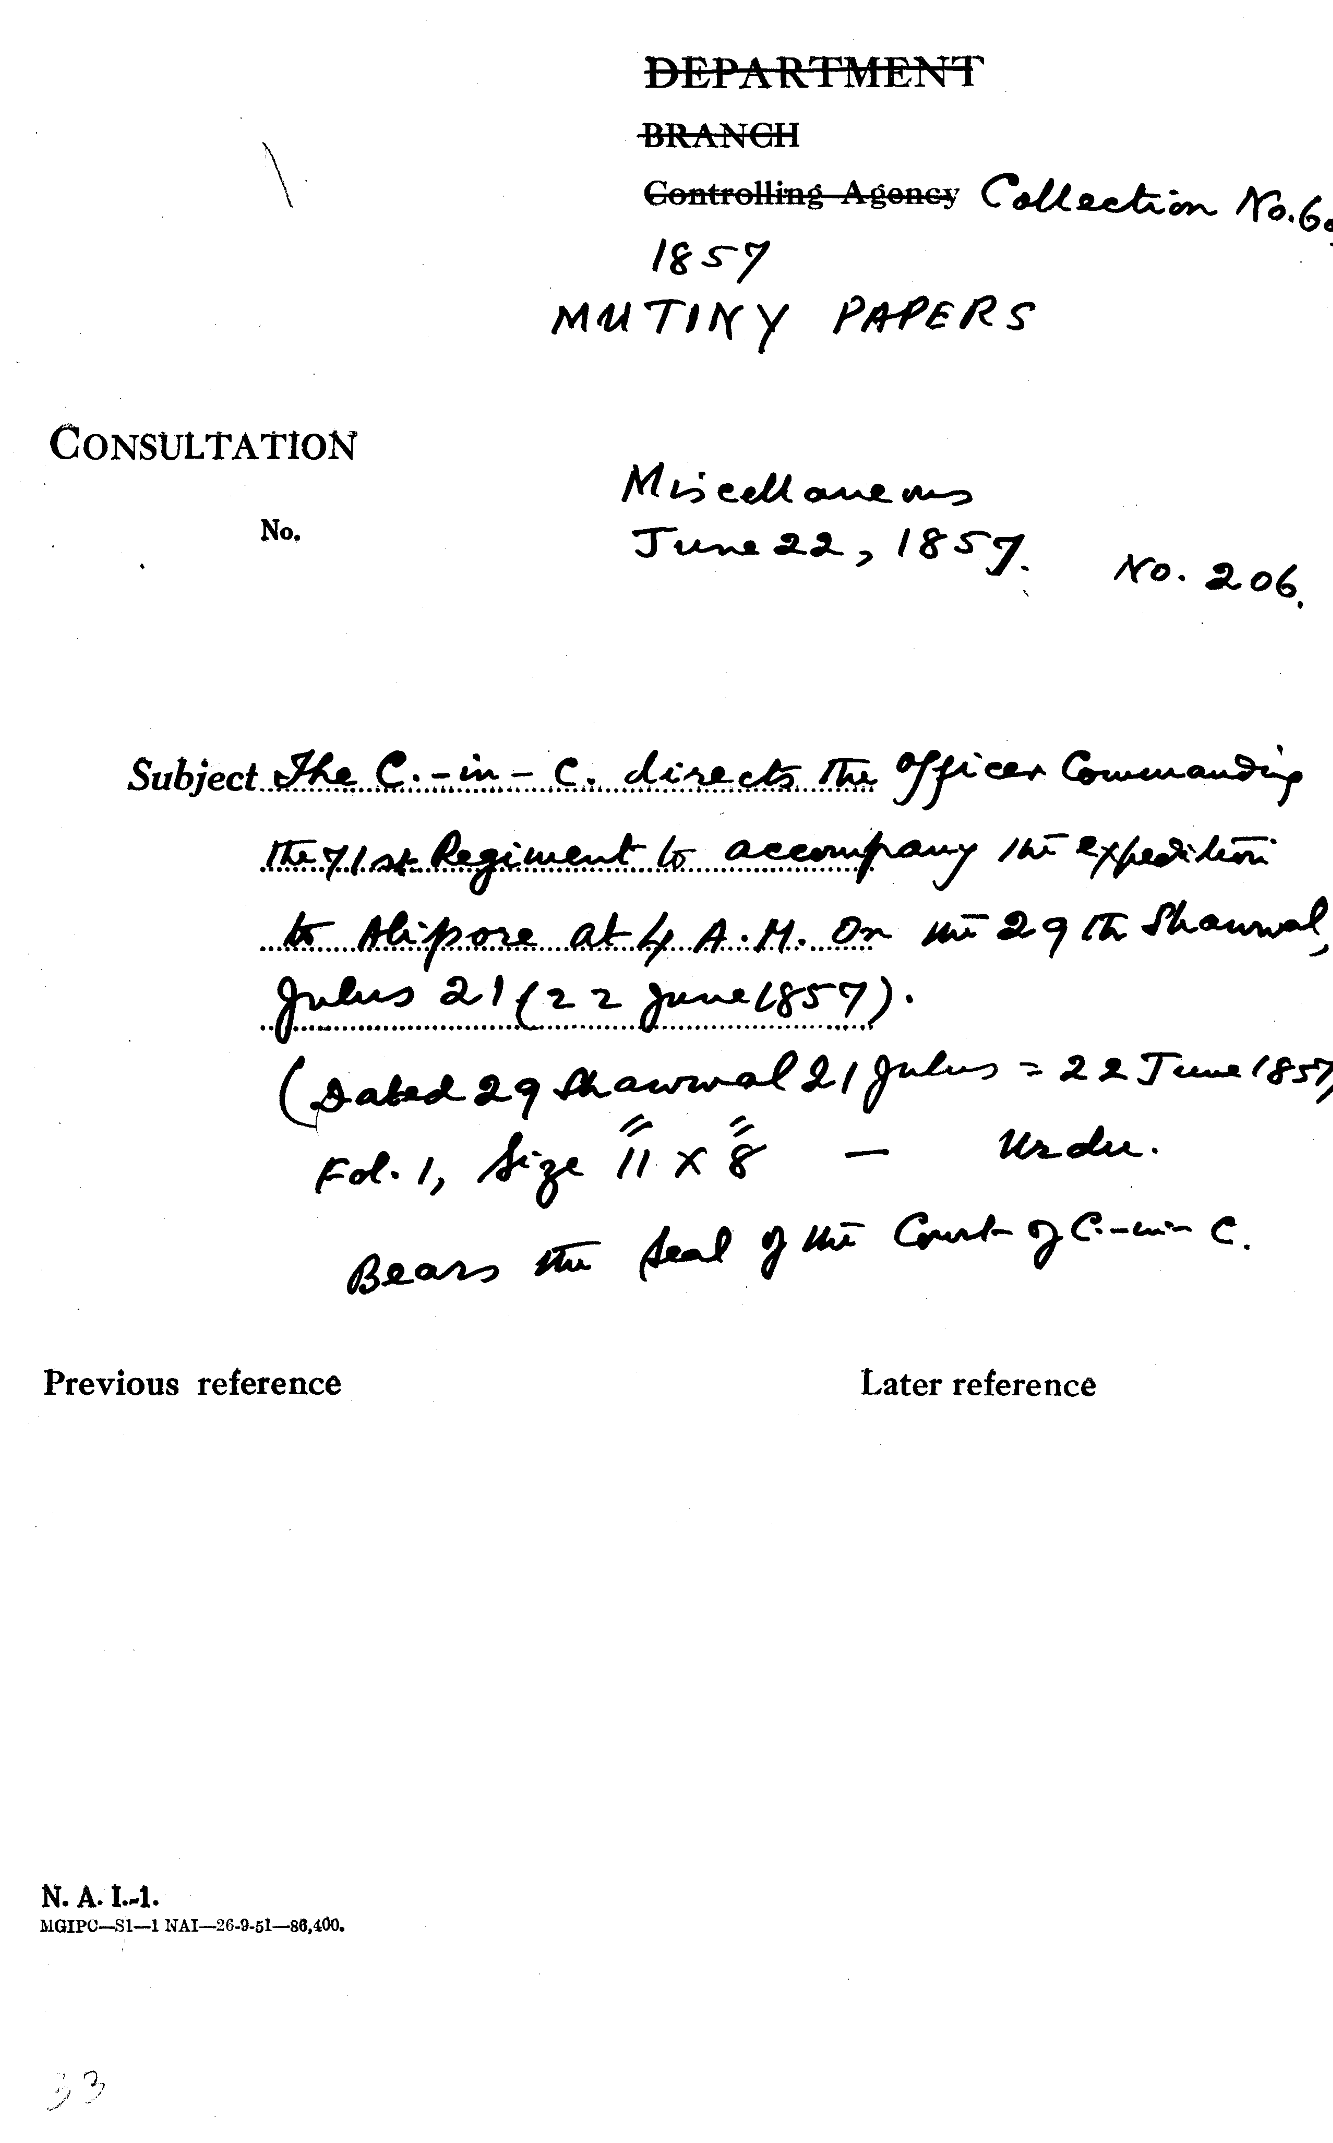 DEPARTMENT
BRANCH
Controlling Agency Collection No. 60
1857
MUTINY PAPERS
CONSULTATION
Miscellaneous
No.
June 22, 1857. No. 206.
Subject The C.-in-C. directs the officer Commanding
the 71st Regiment to accompany the expedition
to Alipore at 4 A.M. on the 29th Shawwal,
Julus 21 (22 June 1857).
(Dated 29 Shawwal 21 Julus = 22 June 1857
Fol. 1, Size 11" x 8" — Urdu.
Bears the seal of the Court of C.-in-C.
Previous reference Later reference
N. A. I.-1.
MGIPC—S1—1 NAI—26-9-51—86,400.
33